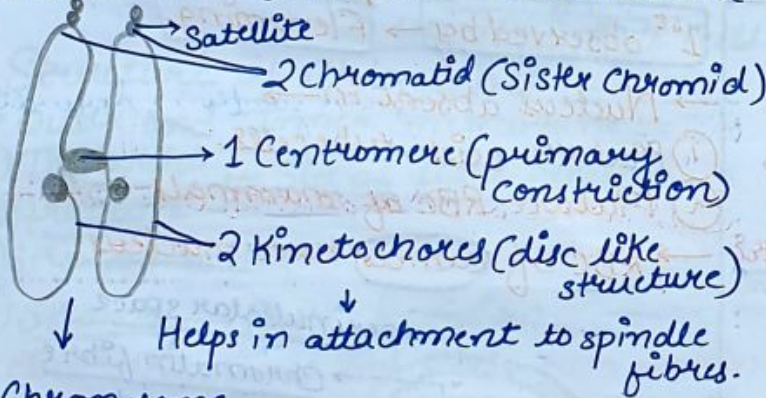 Satellite
2 Chromatid (Sister Chromid)
1 Centromere (primary
constriction)
2 Kinetochores (disc like
structure)
Helps in attachment to spindle
fibres.